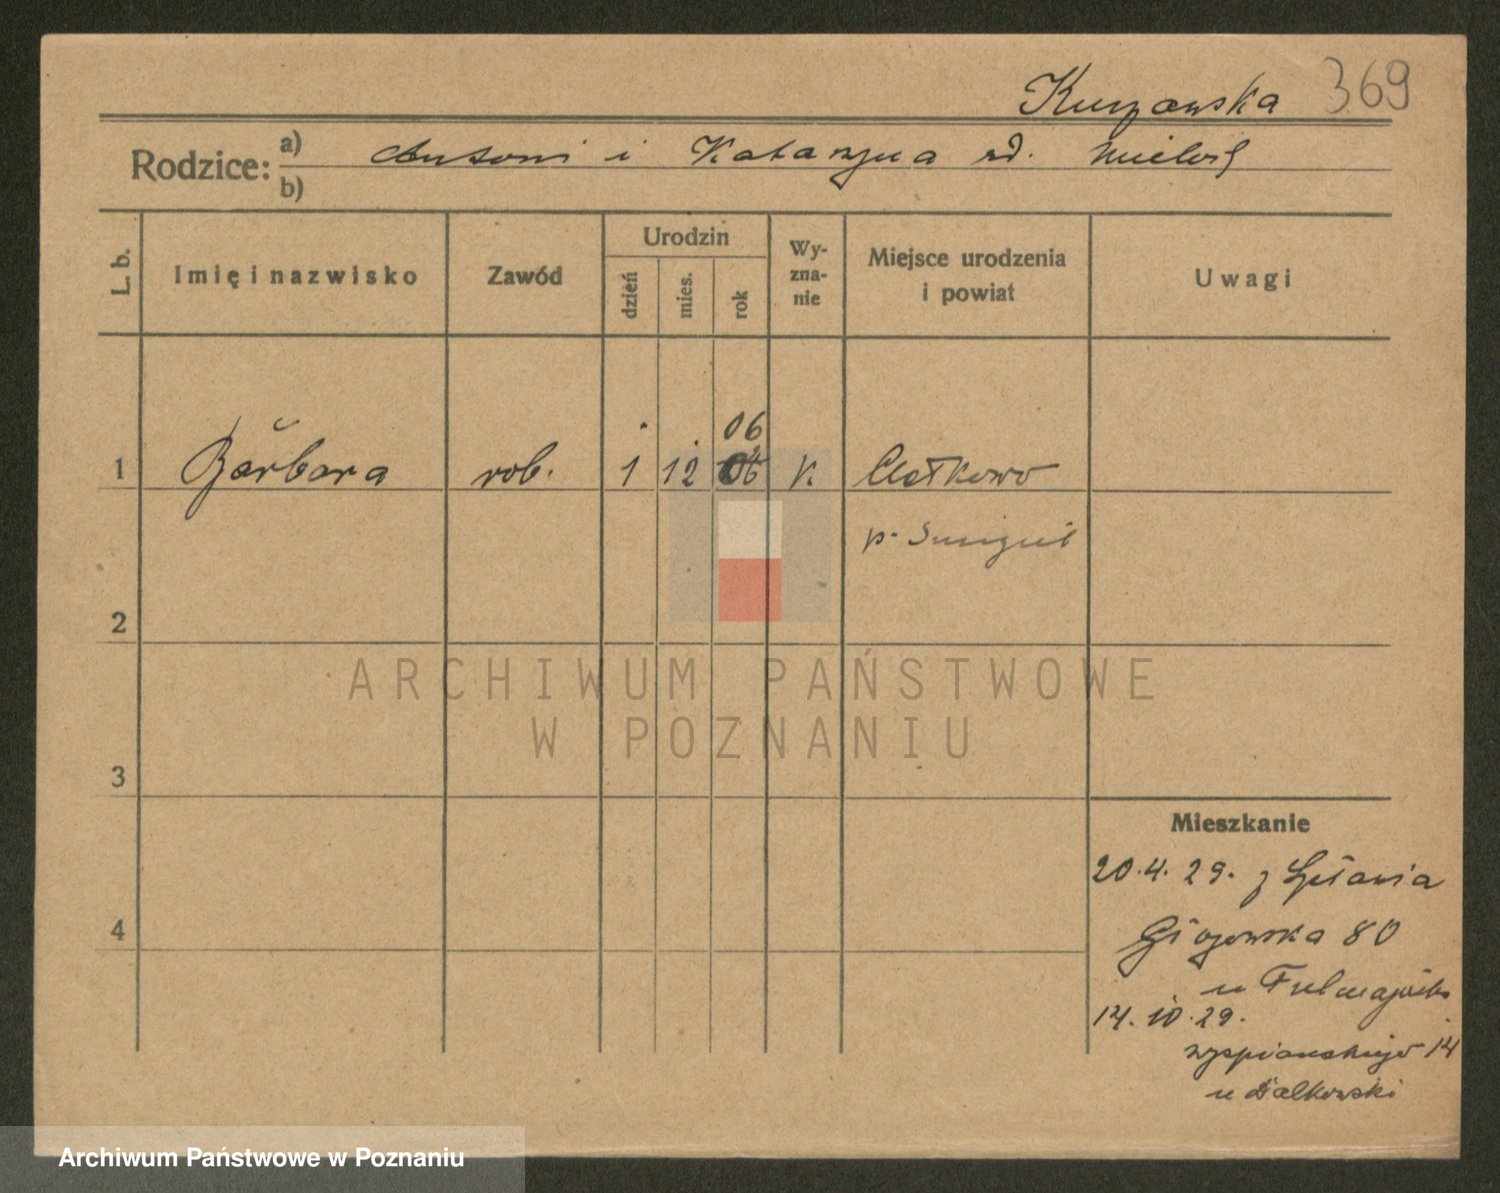 Kurzawska 369
Rodzice: a) Antoni i Katarzyna zd.
b)
L. b. Imię i nazwisko Zawód Urodzin dzień mies. rok Wy-zna-nie Miejsce urodzenia i powiat Uwagi
06
1 Barbara rob. 1 12 06 K
p. Śmigiel
2
ARCHIWUM PAŃSTWOWE
W POZNANIU
3
Mieszkanie
20.4.29. z
4 Głogowska 80
u
14.10.29.
Wyspiańskiego 14
u Białkowski
Archiwum Państwowe w Poznaniu